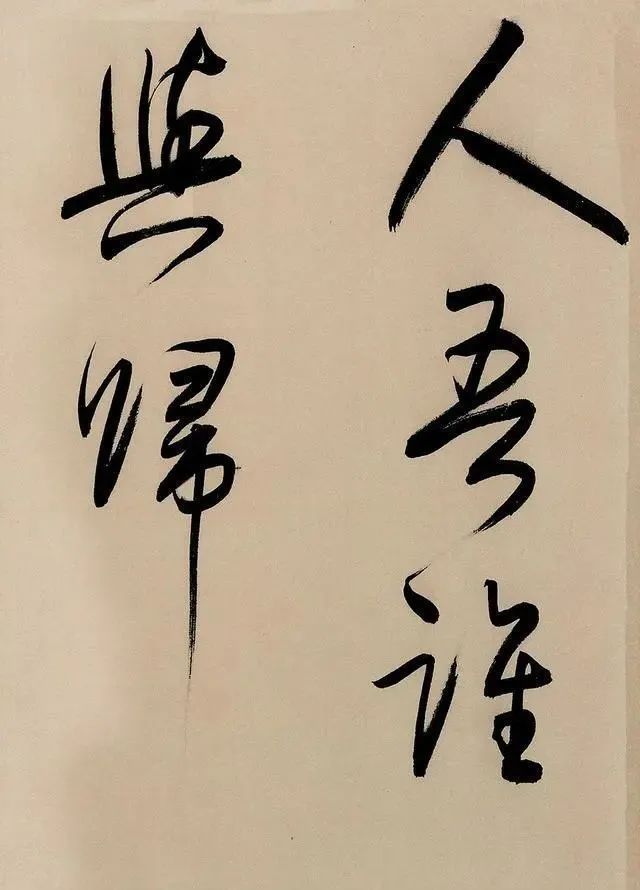 人吾誰
與歸